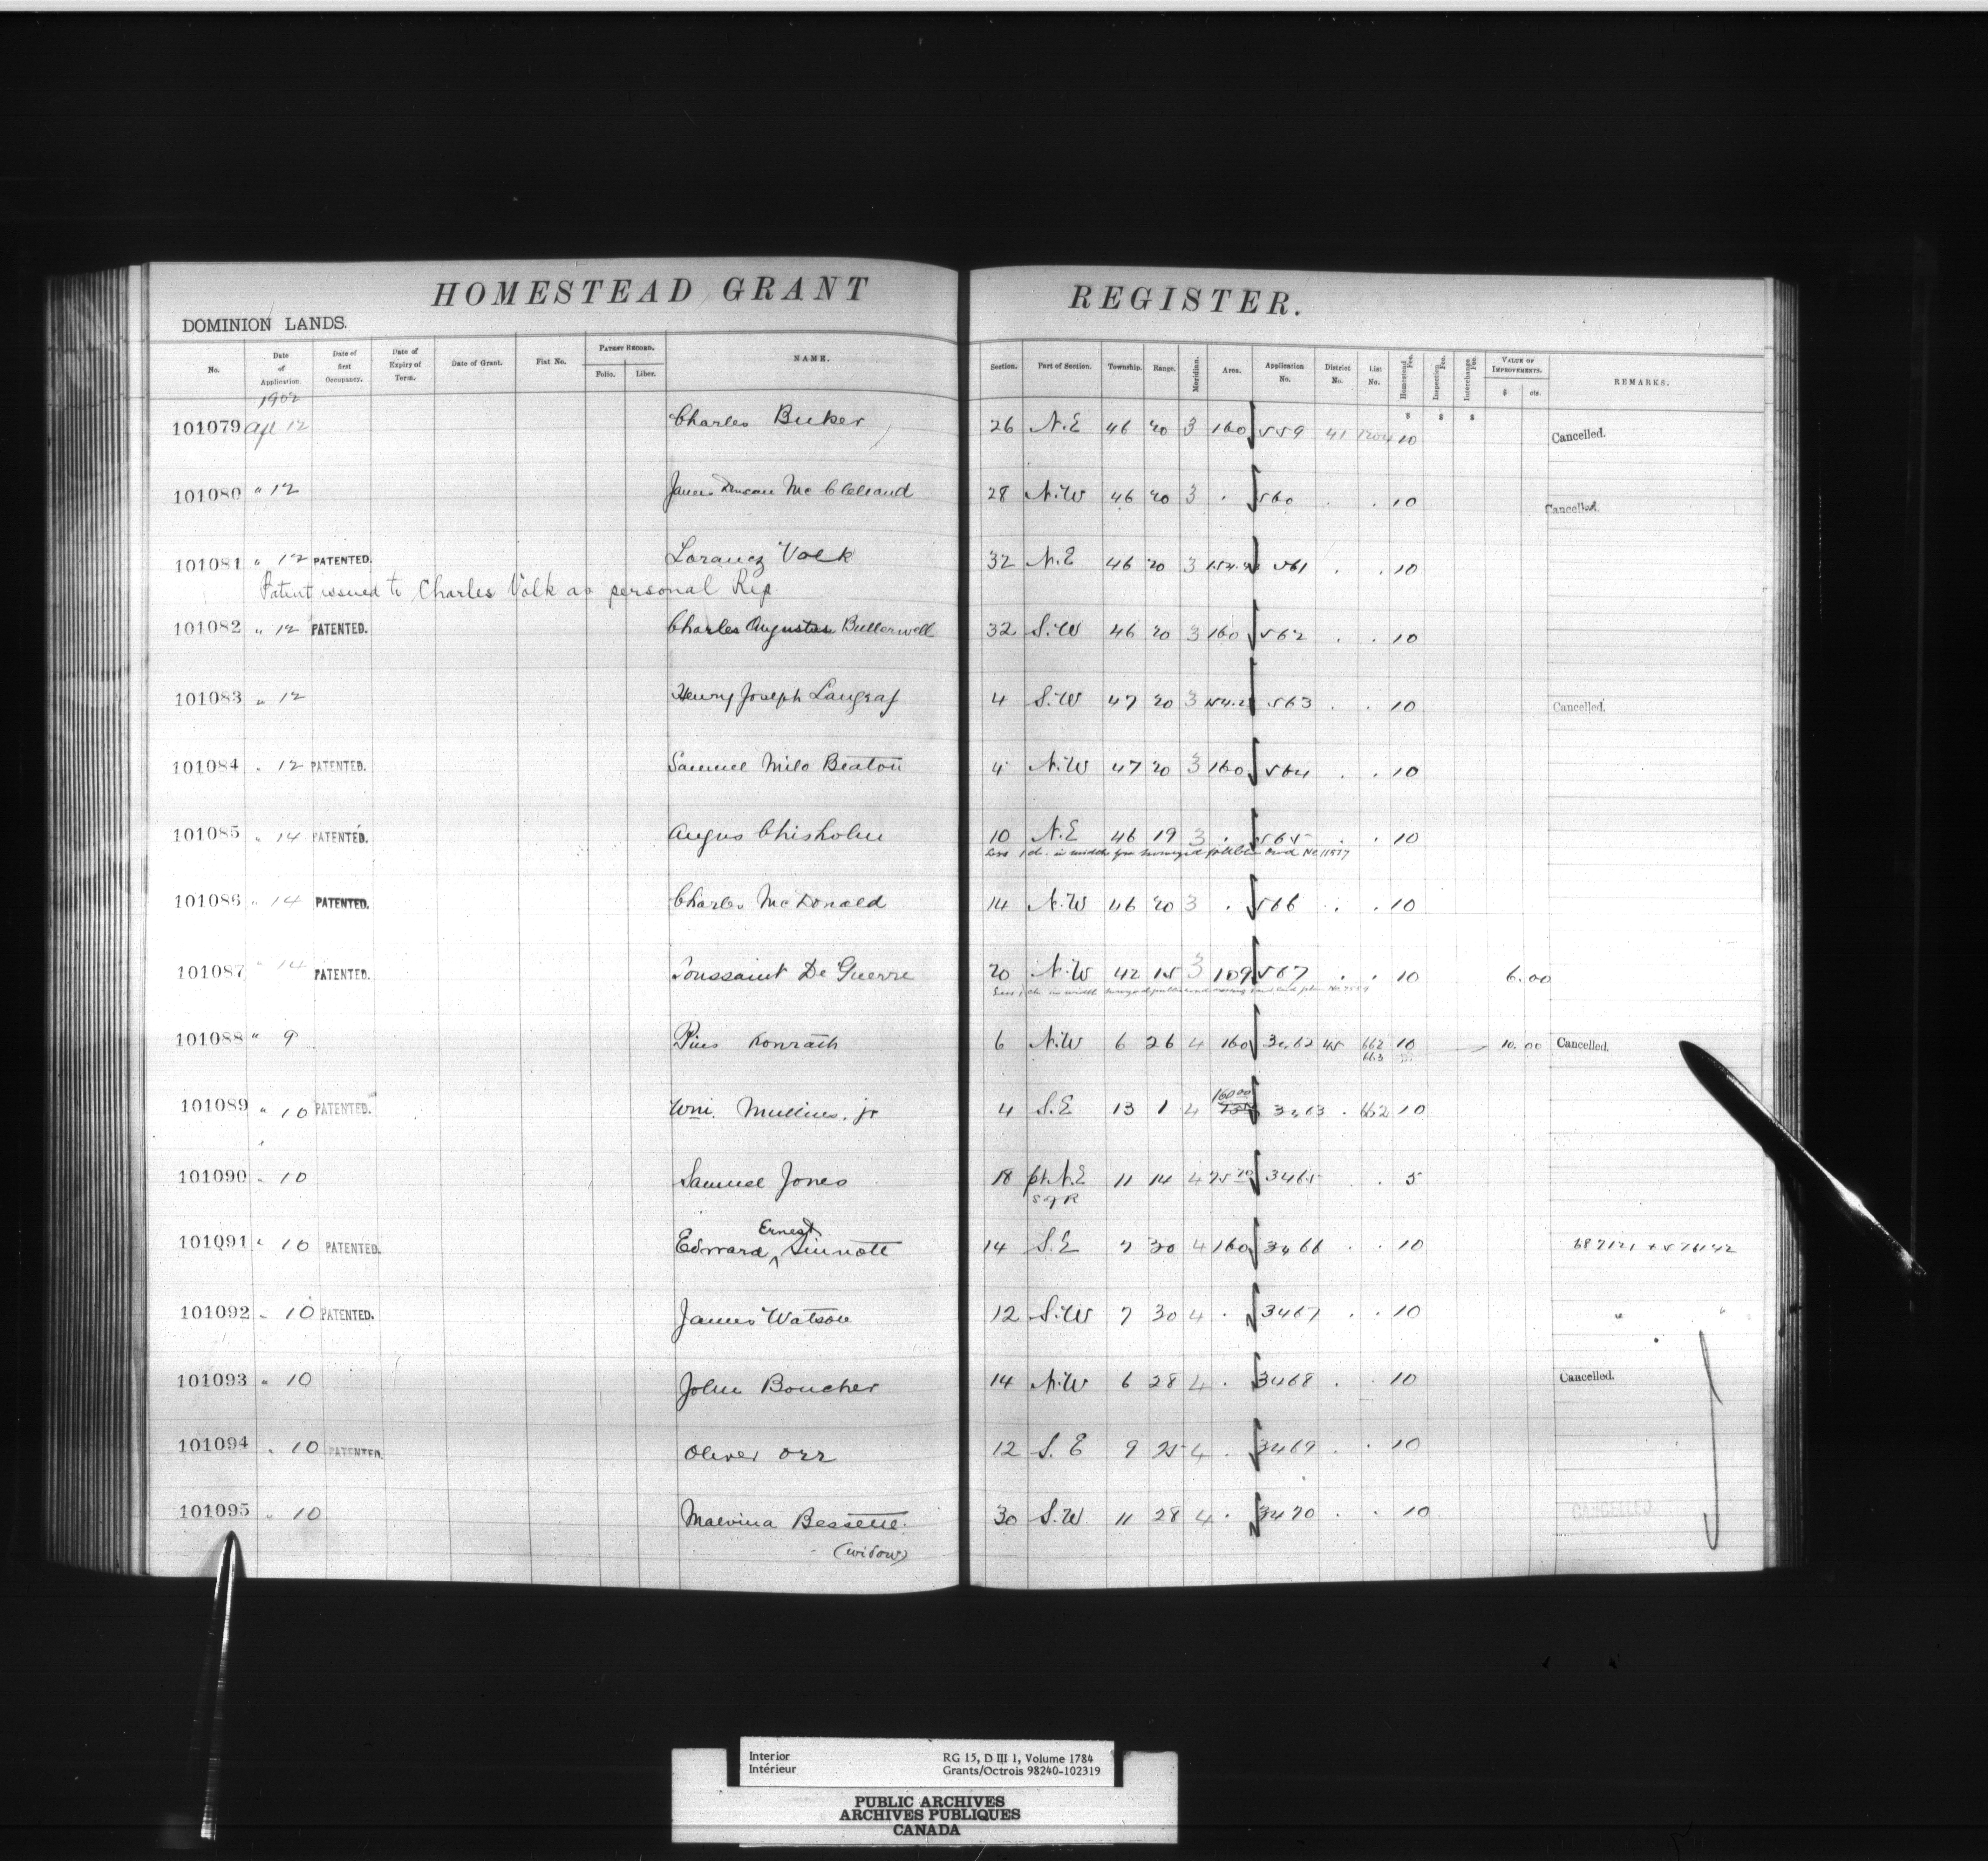 HOMESTEAD GRANT REGISTER.
DOMINION LANDS.
No. Date of Application. Date of first Occupancy. Date of Expiry of Term. Date of Grant. Fiat No. PATENT RECORD. Folio. Liber. NAME. Section. Part of Section. Township. Range. Meridian. Area. Application No. District No. List No. Homestead Fee. Inspection Fee. Interchange Fee. VALUE OF IMPROVEMENTS. $ cts. REMARKS.
1902 $ $ $
101079 Apl 12 Charles Buker 26 N.E 46 20 3 160 559 41 1204 10 Cancelled.
101080 " 12 James Duncan McClelland 28 N.W 46 20 3 . 560 . . 10 Cancelled.
101081 " 12 PATENTED. Lorancz Volk 32 N.E 46 20 3 561 . . 10
Patent issued to Charles Volk as personal Rep.
101082 " 12 PATENTED. Charles Augustus Bullerwell 32 S.W 46 20 3 160 562 . . 10
101083 " 12 Henry Joseph Langraf 4 S.W 47 20 3 563 . . 10 Cancelled.
101084 " 12 PATENTED. Samuel Milo Beaton 4 N.W 47 20 3 160 564 . . 10
101085 " 14 PATENTED. Angus Chisholm 10 N.E 46 19 3 . 565 . . 10
Less 1 ch. in width for surveyed public road No
101086 " 14 PATENTED. Charles McDonald 14 N.W 46 20 3 . 566 . . 10
101087 " 14 PATENTED. Toussaint De Guerre 20 N.W 42 15 3 159 567 . . 10 6.00
Less 1 ch. in width surveyed public road
101088 " 9 Pius Konrath 6 N.W 6 26 4 160 3462 45 662 10 10.00 Cancelled.
663
101089 " 10 PATENTED. Wm. Mullins, jr 4 S.E 13 1 4 160 00 3463 . 662 10
101090 " 10 Samuel Jones 18 pt. N.E 11 14 4 3465 . 5
S of R
101091 " 10 PATENTED. Edward Ernest Sinnott 14 S.E 7 30 4 160 3466 . . 10
101092 " 10 PATENTED. James Watson 12 S.W 7 30 4 . 3467 . . 10 " "
101093 " 10 John Boucher 14 N.W 6 28 4 . 3468 . . 10 Cancelled.
101094 " 10 PATENTED. Oliver Orr 12 S.E 9 25 4 . 3469 . . 10
101095 " 10 Malvina Bessette. 30 S.W 11 28 4 . 3470 . . 10 CANCELLED
(widow)
Interior RG 15, D III 1, Volume 1784
Intérieur Grants/Octrois 98240-102319
PUBLIC ARCHIVES
ARCHIVES PUBLIQUES
CANADA